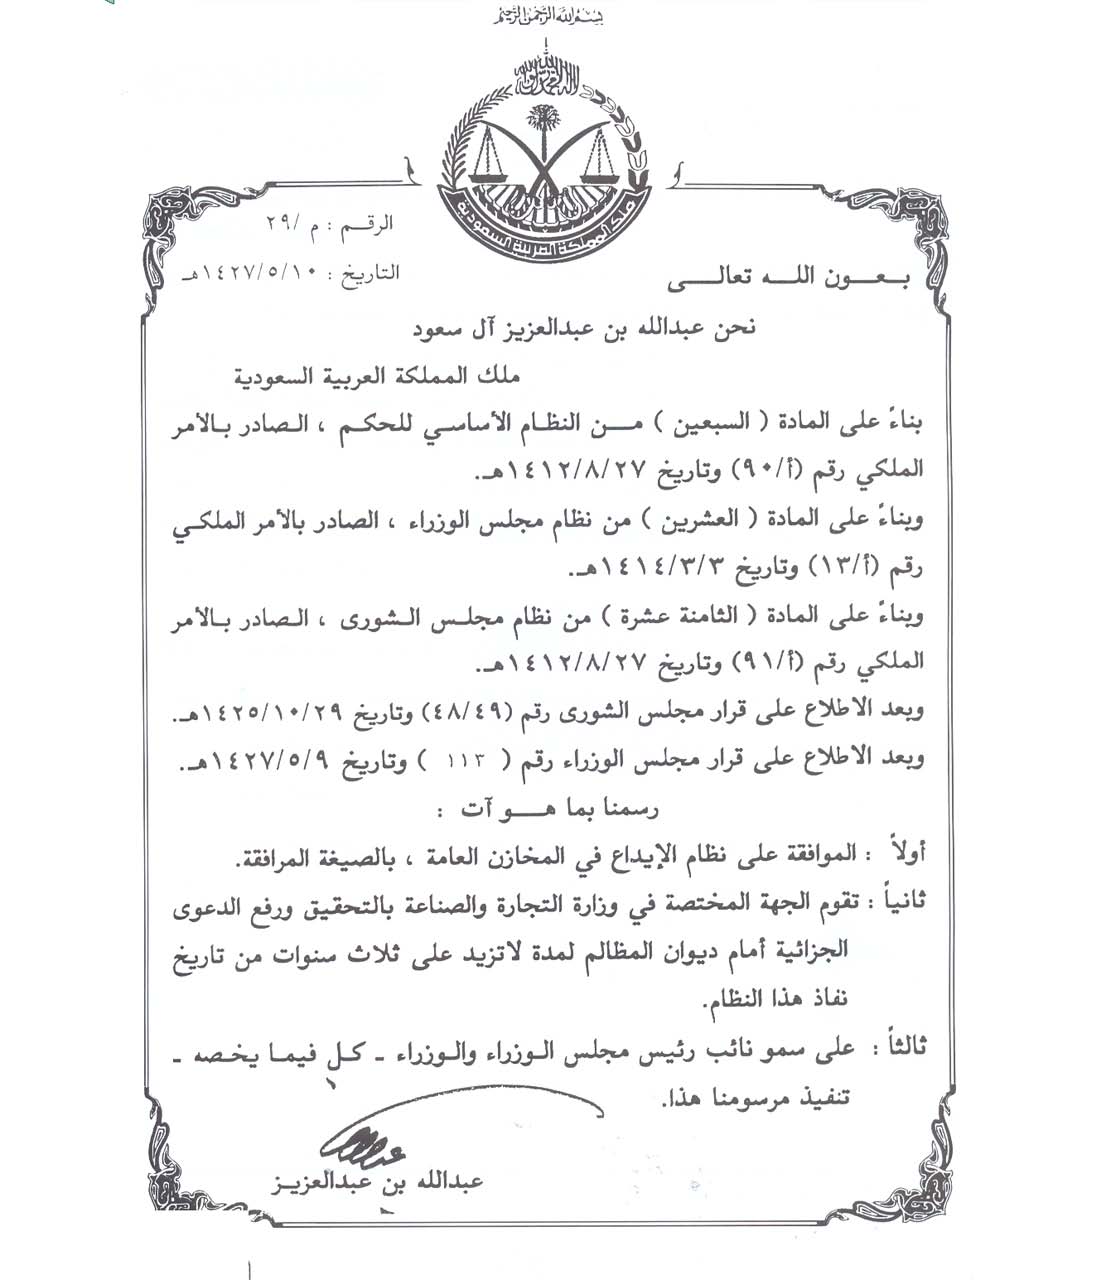 بسم الله الرحمن الرحيم
لا إله إلا الله محمد رسول الله
ملك المملكة العربية السعودية
الرقم : م /٢٩
التاريخ : ١٤٢٧/٥/١٠هـ
بعون الله تعالى
نحن عبدالله بن عبدالعزيز آل سعود
ملك المملكة العربية السعودية
بناءً على المادة ( السبعين ) من النظام الأساسي للحكم ، الصادر بالأمر
الملكي رقم (أ/٩٠) وتاريخ ١٤١٢/٨/٢٧هـ.
وبناءً على المادة ( العشرين ) من نظام مجلس الوزراء ، الصادر بالأمر الملكي
رقم (أ/١٣) وتاريخ ١٤١٤/٣/٣هـ.
وبناءً على المادة ( الثامنة عشرة ) من نظام مجلس الشورى ، الصادر بالأمر
الملكي رقم (أ/٩١) وتاريخ ١٤١٢/٨/٢٧هـ.
وبعد الاطلاع على قرار مجلس الشورى رقم (٤٨/٤٩) وتاريخ ١٤٢٥/١٠/٢٩هـ.
وبعد الاطلاع على قرار مجلس الوزراء رقم ( ١١٣ ) وتاريخ ١٤٢٧/٥/٩هـ.
رسمنا بما هو آت :
أولاً : الموافقة على نظام الإيداع في المخازن العامة ، بالصيغة المرافقة.
ثانياً : تقوم الجهة المختصة في وزارة التجارة والصناعة بالتحقيق ورفع الدعوى
الجزائية أمام ديوان المظالم لمدة لاتزيد على ثلاث سنوات من تاريخ
نفاذ هذا النظام.
ثالثاً : على سمو نائب رئيس مجلس الوزراء والوزراء ـ كل فيما يخصه ـ
تنفيذ مرسومنا هذا.
عبدالله بن عبدالعزيز